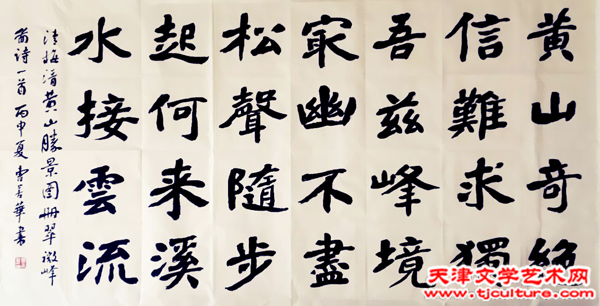 黄山奇絶
信難求獨
吾兹峰境
㝡幽不盡
松聲隨步
起何来溪
水接雲流
清梅清黄山勝景圖册翠微峰
嵛诗一首 丙申夏 曹善華书
天津文学艺术网
www.tjculture.com